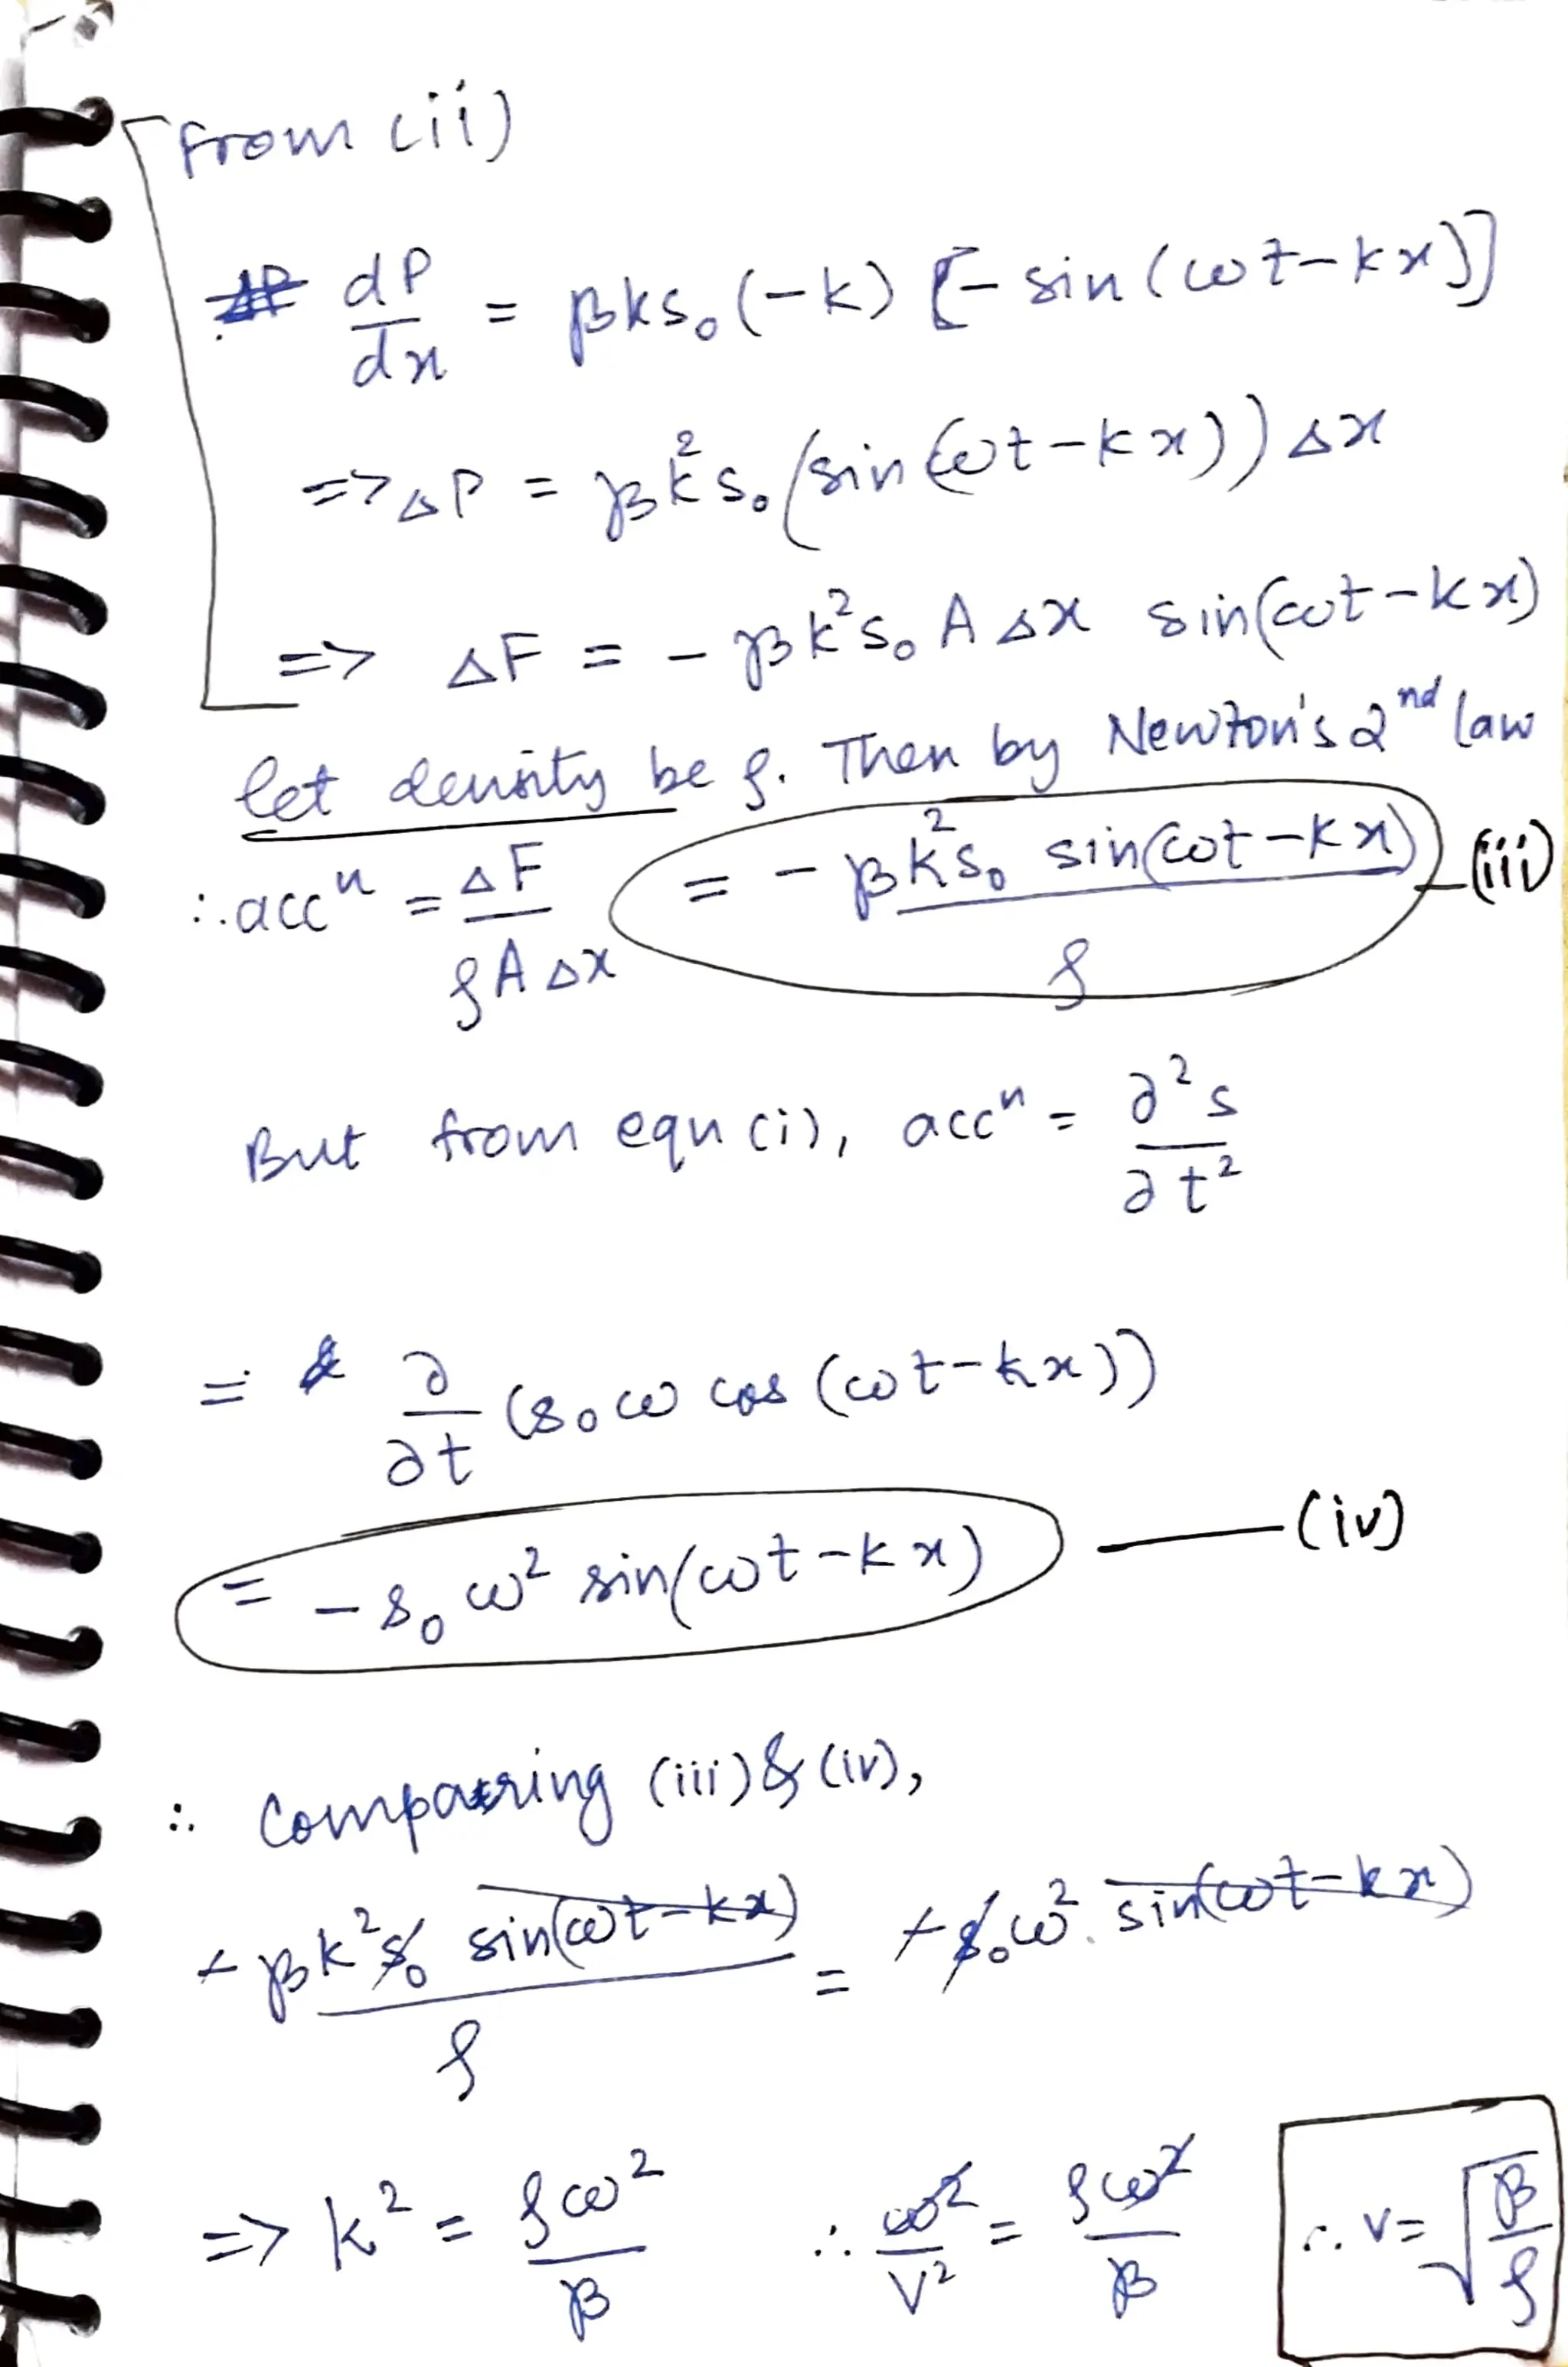 from (ii)
dP/dx = βks₀(-k) [- sin(ωt-kx)]
=> ΔP = βk²s₀(sin(ωt-kx)) Δx
=> ΔF = - βk²s₀ A Δx sin(ωt-kx)
let density be ρ. Then by Newton's 2nd law
∴ accⁿ = ΔF/ρAΔx = - βk²s₀ sin(ωt-kx)/ρ —(iii)
But from equn (i), accⁿ = ∂²s/∂t²
= ∂/∂t (s₀ω cos (ωt-kx))
= -s₀ω² sin(ωt-kx) —(iv)
∴ Comparing (iii) & (iv),
-βk²s₀ sin(ωt-kx)/ρ = -s₀ω². sin(ωt-kx)
=> k² = ρω²/β ∴ ω²/V² = ρω²/β ∴ V = √β/ρ